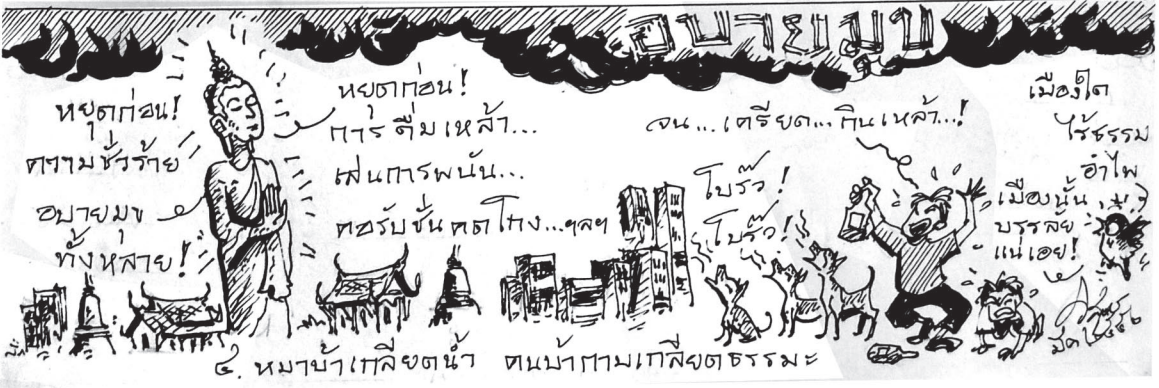 อบายมุข
หยุดก่อน!
ความชั่วร้าย
อบายมุข
ทั้งหลาย!
หยุดก่อน!
การดื่มเหล้า...
เล่นการพนัน...
คอรับชั่นคดโกง...ฯลฯ
จน...เครียด...กินเหล้า...!
โบร๊ว!
โบร๊ว!
เมืองใด
ไร้ธรรม
อำไพ
เมืองนั้น
บรรลัย
แน่เอย!
๔. หมาบ้าเกลียดน้ำ คนบ้ากามเกลียดธรรมะ